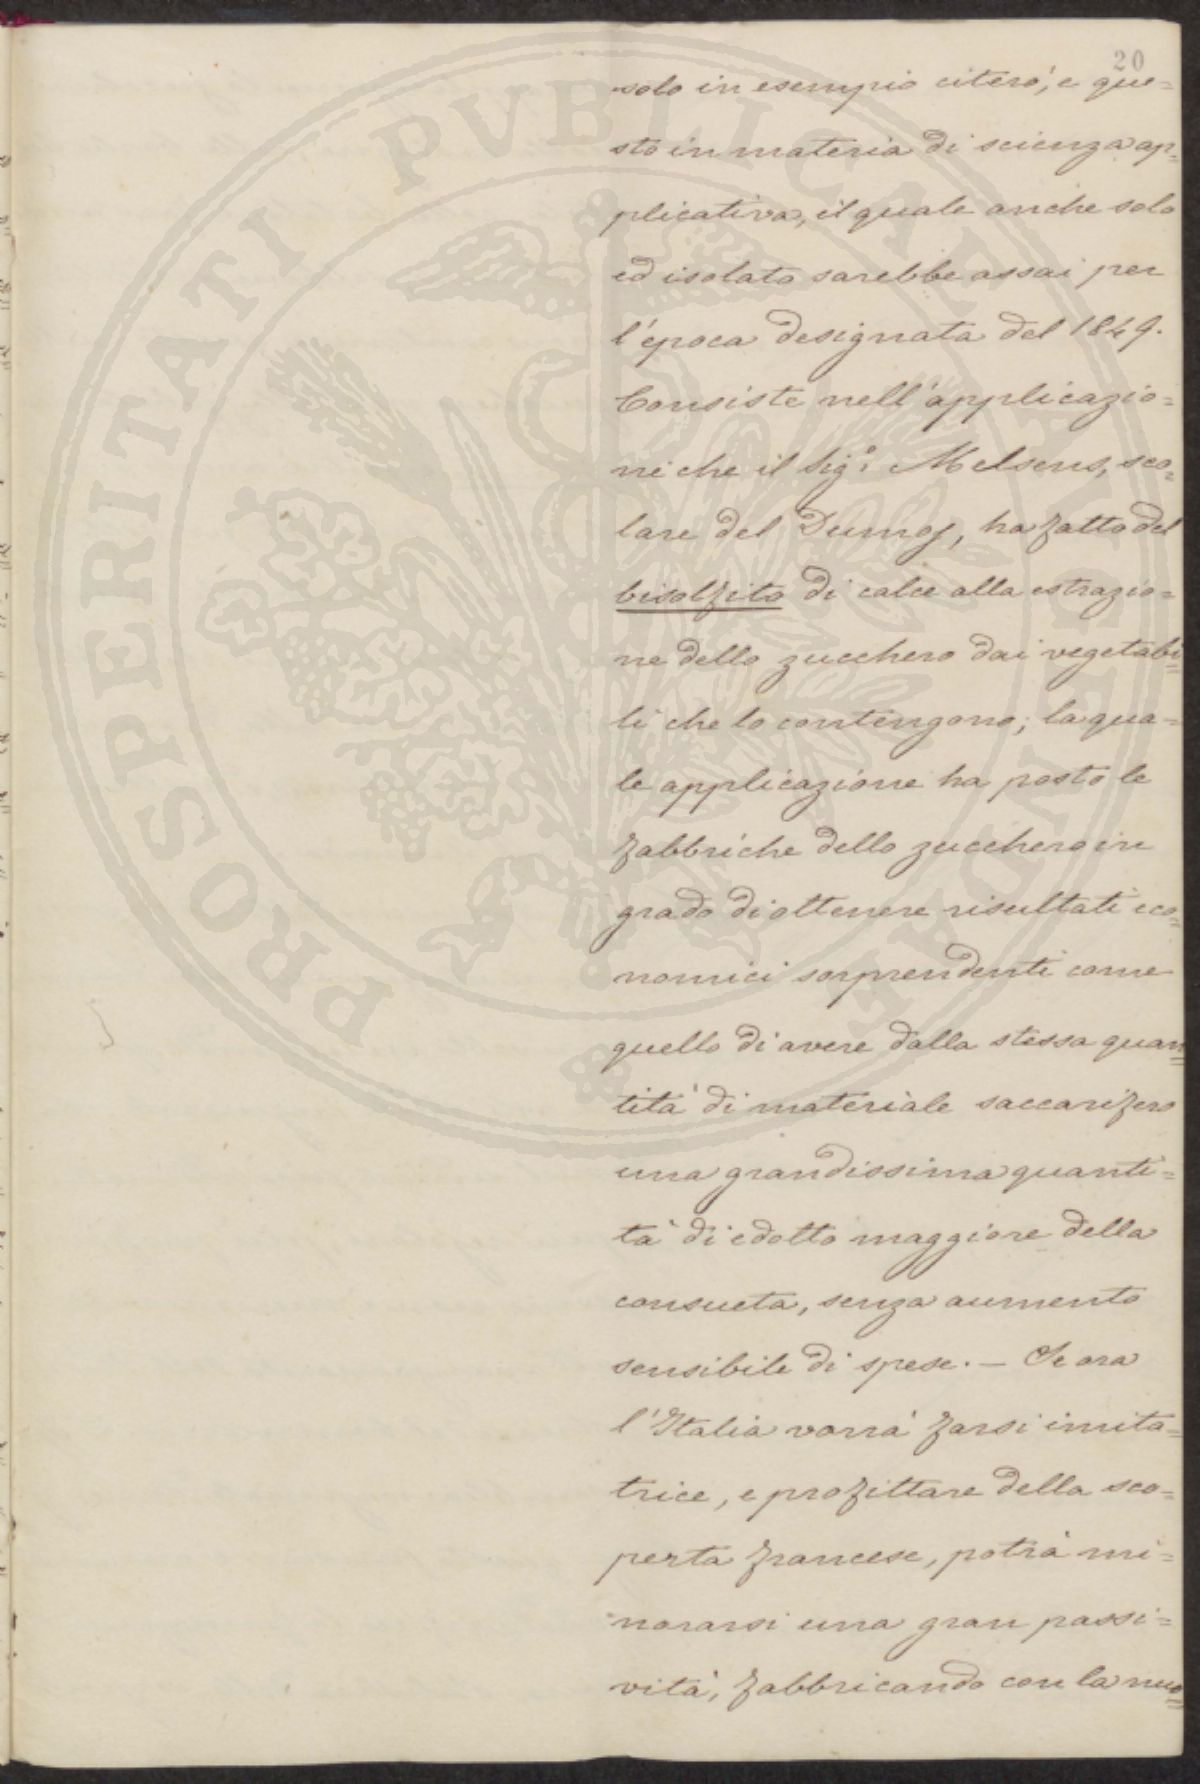 20
solo in esempio citerò, e que=
sto in materia di scienza ap=
plicativa, il quale anche solo
ed isolato sarebbe assai per
l'epoca designata del 1849.
Consiste nell'applicazio=
ne che il Sig.r Melsens, sco=
lare del Dumas, ha fatto del
bisolfito di calce alla estrazio=
ne dello zucchero dai vegetabi=
li che lo contengono; la qua=
le applicazione ha posto le
fabbriche dello zucchero in
grado di ottenere risultati eco=
nomici sorprendenti come
quello di avere dalla stessa quan=
tità di materiale saccarifero
una grandissima quanti=
tà di edotto maggiore della
consueta, senza aumento
sensibile di spese. — Se ora
l'Italia vorrà farsi imita=
trice, e profittare della sco=
perta francese, potrà mi=
norarsi una gran passi=
vità, fabbricando con la nuo=
PROSPERITATI PVBLICAE AVGENDAE